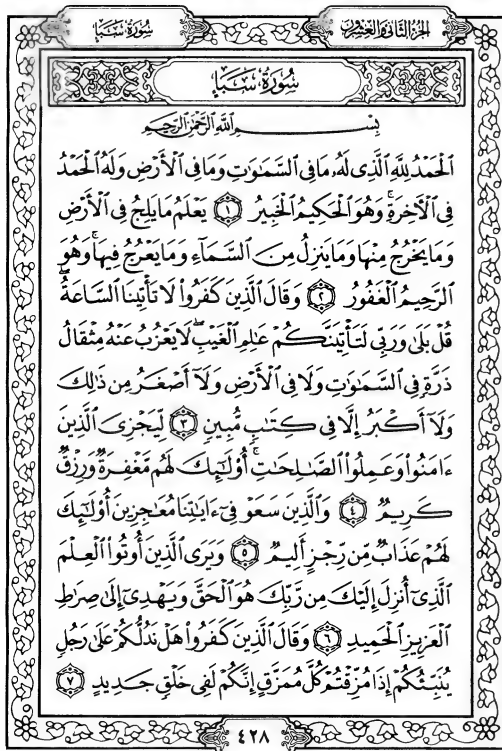 الجزء الثاني والعشرون
سُورَةُ سَبَإٍ
سُورَةُ سَبَإٍ
بِسْمِ اللَّهِ الرَّحْمَٰنِ الرَّحِيمِ
الْحَمْدُ لِلَّهِ الَّذِي لَهُ مَا فِي السَّمَاوَاتِ وَمَا فِي الْأَرْضِ وَلَهُ الْحَمْدُ
فِي الْآخِرَةِ ۚ وَهُوَ الْحَكِيمُ الْخَبِيرُ ١ يَعْلَمُ مَا يَلِجُ فِي الْأَرْضِ
وَمَا يَخْرُجُ مِنْهَا وَمَا يَنزِلُ مِنَ السَّمَاءِ وَمَا يَعْرُجُ فِيهَا ۚ وَهُوَ
الرَّحِيمُ الْغَفُورُ ٢ وَقَالَ الَّذِينَ كَفَرُوا لَا تَأْتِينَا السَّاعَةُ ۖ
قُلْ بَلَىٰ وَرَبِّي لَتَأْتِيَنَّكُمْ عَالِمِ الْغَيْبِ ۖ لَا يَعْزُبُ عَنْهُ مِثْقَالُ
ذَرَّةٍ فِي السَّمَاوَاتِ وَلَا فِي الْأَرْضِ وَلَا أَصْغَرُ مِن ذَٰلِكَ
وَلَا أَكْبَرُ إِلَّا فِي كِتَابٍ مُّبِينٍ ٣ لِّيَجْزِيَ الَّذِينَ
ءَامَنُوا وَعَمِلُوا الصَّالِحَاتِ ۚ أُولَٰئِكَ لَهُم مَّغْفِرَةٌ وَرِزْقٌ
كَرِيمٌ ٤ وَالَّذِينَ سَعَوْ فِي ءَايَاتِنَا مُعَاجِزِينَ أُولَٰئِكَ
لَهُمْ عَذَابٌ مِّن رِّجْزٍ أَلِيمٌ ٥ وَيَرَى الَّذِينَ أُوتُوا الْعِلْمَ
الَّذِي أُنزِلَ إِلَيْكَ مِن رَّبِّكَ هُوَ الْحَقَّ وَيَهْدِي إِلَىٰ صِرَاطِ
الْعَزِيزِ الْحَمِيدِ ٦ وَقَالَ الَّذِينَ كَفَرُوا هَلْ نَدُلُّكُمْ عَلَىٰ رَجُلٍ
يُنَبِّئُكُمْ إِذَا مُزِّقْتُمْ كُلَّ مُمَزَّقٍ إِنَّكُمْ لَفِي خَلْقٍ جَدِيدٍ ٧
٤٢٨